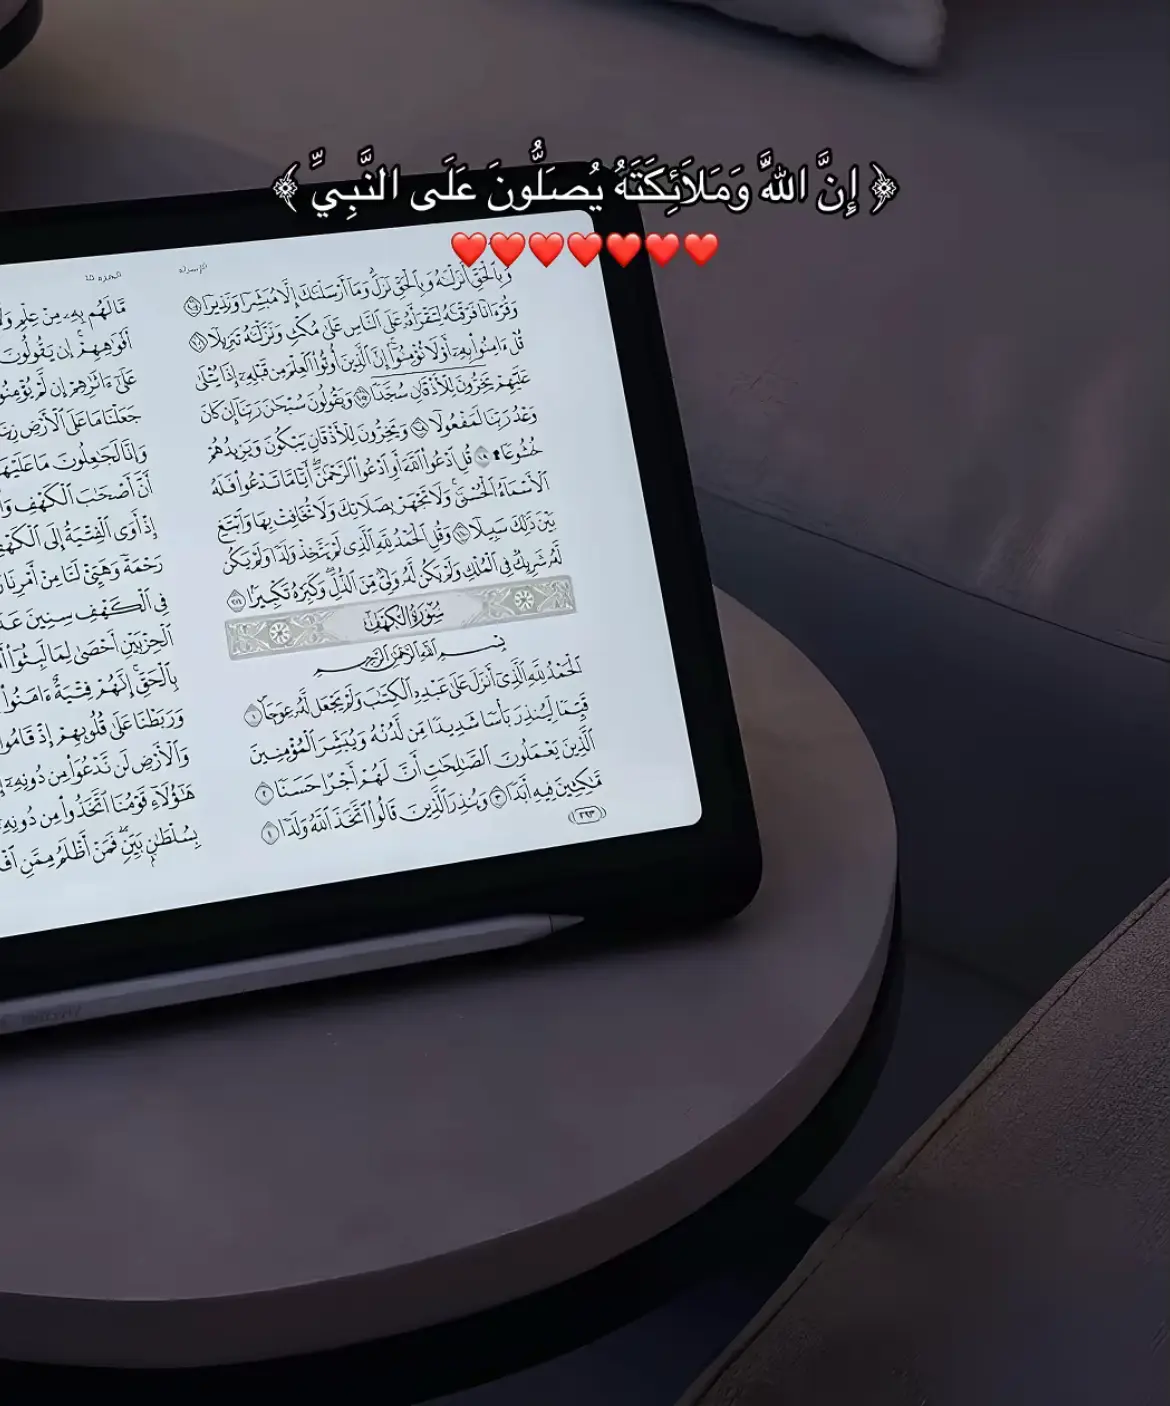 ﴿ إِنَّ اللَّهَ وَمَلَائِكَتَهُ يُصَلُّونَ عَلَى النَّبِيِّ ﴾
❤️❤️❤️❤️❤️❤️❤️
الإسراء
وَبِالْحَقِّ أَنزَلْنَاهُ وَبِالْحَقِّ نَزَلَ وَمَا أَرْسَلْنَاكَ إِلَّا مُبَشِّرًا وَنَذِيرًا ١٠٥
وَقُرْءَانًا فَرَقْنَاهُ لِتَقْرَأَهُ عَلَى النَّاسِ عَلَىٰ مُكْثٍ وَنَزَّلْنَاهُ تَنزِيلًا ١٠٦
قُلْ ءَامِنُوا بِهِ أَوْ لَا تُؤْمِنُوا إِنَّ الَّذِينَ أُوتُوا الْعِلْمَ مِن قَبْلِهِ إِذَا يُتْلَىٰ
عَلَيْهِمْ يَخِرُّونَ لِلْأَذْقَانِ سُجَّدًا ١٠٧ وَيَقُولُونَ سُبْحَانَ رَبِّنَا إِن كَانَ
وَعْدُ رَبِّنَا لَمَفْعُولًا ١٠٨ وَيَخِرُّونَ لِلْأَذْقَانِ يَبْكُونَ وَيَزِيدُهُمْ
خُشُوعًا ۩ ١٠٩ قُلِ ادْعُوا اللَّهَ أَوِ ادْعُوا الرَّحْمَٰنَ أَيًّا مَّا تَدْعُوا فَلَهُ
الْأَسْمَاءُ الْحُسْنَىٰ وَلَا تَجْهَرْ بِصَلَاتِكَ وَلَا تُخَافِتْ بِهَا وَابْتَغِ
بَيْنَ ذَٰلِكَ سَبِيلًا ١١٠ وَقُلِ الْحَمْدُ لِلَّهِ الَّذِي لَمْ يَتَّخِذْ وَلَدًا وَلَمْ يَكُن
لَّهُ شَرِيكٌ فِي الْمُلْكِ وَلَمْ يَكُن لَّهُ وَلِيٌّ مِّنَ الذُّلِّ وَكَبِّرْهُ تَكْبِيرًا ١١١
سُورَةُ الْكَهْفِ
بِسْمِ اللَّهِ الرَّحْمَٰنِ الرَّحِيمِ
الْحَمْدُ لِلَّهِ الَّذِي أَنزَلَ عَلَىٰ عَبْدِهِ الْكِتَابَ وَلَمْ يَجْعَل لَّهُ عِوَجًا ١
قَيِّمًا لِّيُنذِرَ بَأْسًا شَدِيدًا مِّن لَّدُنْهُ وَيُبَشِّرَ الْمُؤْمِنِينَ
الَّذِينَ يَعْمَلُونَ الصَّالِحَاتِ أَنَّ لَهُمْ أَجْرًا حَسَنًا ٢
مَّاكِثِينَ فِيهِ أَبَدًا ٣ وَيُنذِرَ الَّذِينَ قَالُوا اتَّخَذَ اللَّهُ وَلَدًا ٤
٢٩٣
الجزء ١٥
مَّا لَهُم بِهِ مِنْ عِلْمٍ وَلَا
أَفْوَاهِهِمْ إِن يَقُولُونَ
عَلَىٰ ءَاثَارِهِمْ إِن لَّمْ يُؤْمِنُوا
جَعَلْنَا مَا عَلَى الْأَرْضِ زِينَةً
وَإِنَّا لَجَاعِلُونَ مَا عَلَيْهَا
أَنَّ أَصْحَابَ الْكَهْفِ
إِذْ أَوَى الْفِتْيَةُ إِلَى الْكَهْفِ
رَحْمَةً وَهَيِّئْ لَنَا مِنْ أَمْرِنَا
فِي الْكَهْفِ سِنِينَ
الْحِزْبَيْنِ أَحْصَىٰ لِمَا لَبِثُوا
بِالْحَقِّ إِنَّهُمْ فِتْيَةٌ ءَامَنُوا
وَرَبَطْنَا عَلَىٰ قُلُوبِهِمْ إِذْ قَامُوا
وَالْأَرْضِ لَن نَّدْعُوَا مِن دُونِهِ
هَٰؤُلَاءِ قَوْمُنَا اتَّخَذُوا مِن دُونِهِ
بِسُلْطَانٍ بَيِّنٍ فَمَنْ أَظْلَمُ مِمَّنِ